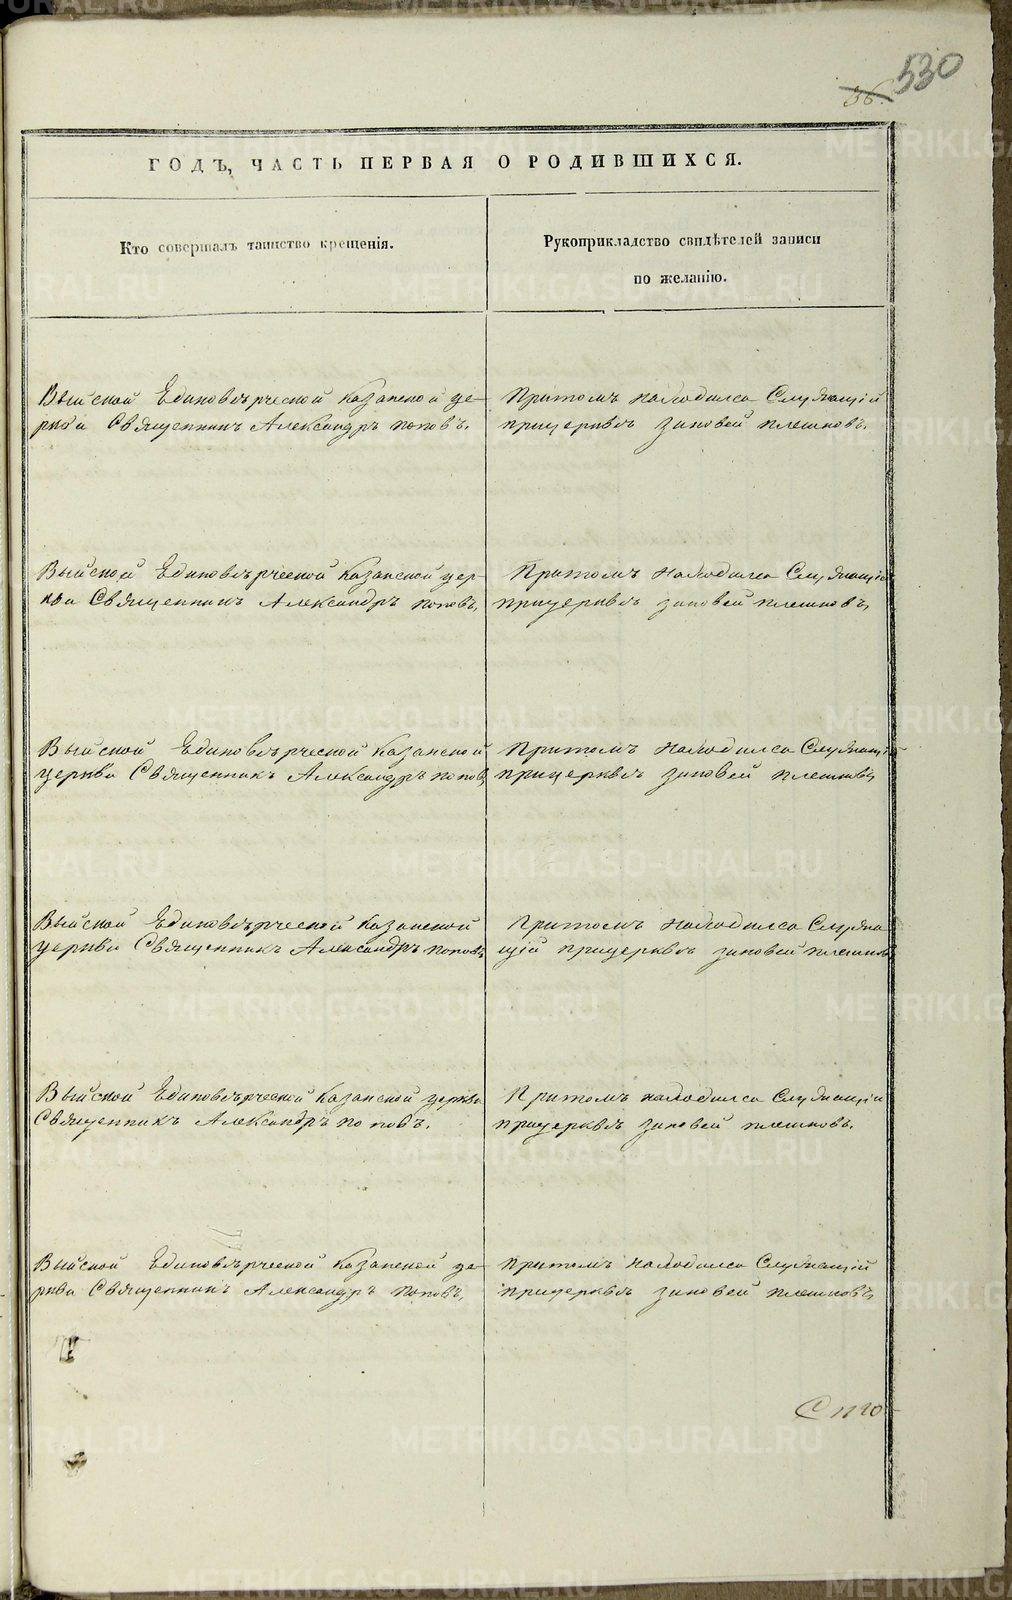 530
36.
ГОДЪ, ЧАСТЬ ПЕРВАЯ О РОДИВШИХСЯ.
Кто совершалъ таинство крещенія.
Рукоприкладство свидѣтелей записи
по желанію.
Выйской Единовѣрческой Казанской це-
ркви Священникъ Александръ Поповъ.
Притомъ находился Служащій
прицерквѣ Зиновей Плешковъ.
Выйской Единовѣрческой Казанской цер-
кви Священникъ Александръ Поповъ,
Притомъ находился Служащій
прицерквѣ Зиновей Плешковъ,
Выйской Единовѣрческой Казанской
церкви Священникъ Александръ Поповъ
Притомъ находился Служащій
прицерквѣ Зиновей Плешковъ,
Выйской Единовѣрческой Казанской
церкви Священникъ Александръ Поповъ
Притомъ находился Служа
щій прицерквѣ Зиновей Плешковъ
Выйской Единовѣрческой Казанской церкви
Священникъ Александръ Поповъ.
Притомъ находился Служащій
прицерквѣ Зиновей Плешковъ.
Выйской Единовѣрческой Казанской це-
ркви Священникъ Александръ Поповъ,
Притомъ находился Служащій
прицерквѣ Зиновей Плешковъ,
METRIKI.GASO-URAL.RU